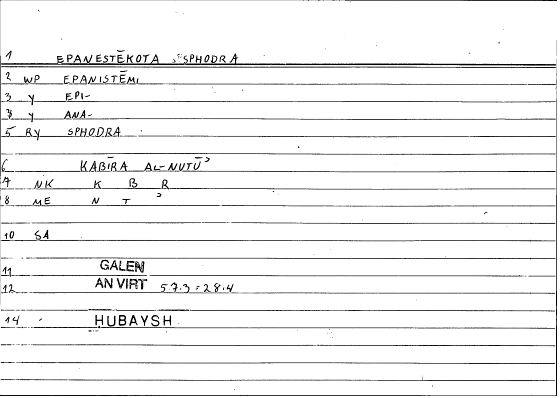 1 EPANESTĒKOTA SPHODRA
2 WP EPANISTĒMI
3 Y EPI-
4 Y ANA-
5 RY SPHODRA
6 KABĪRA AL-NUTŪʾ
7 NK K B R
8 ME N T ʾ
10 SA
11 GALEN
12 AN VIRT 57.3 = 28.4
14 HUBAYSH